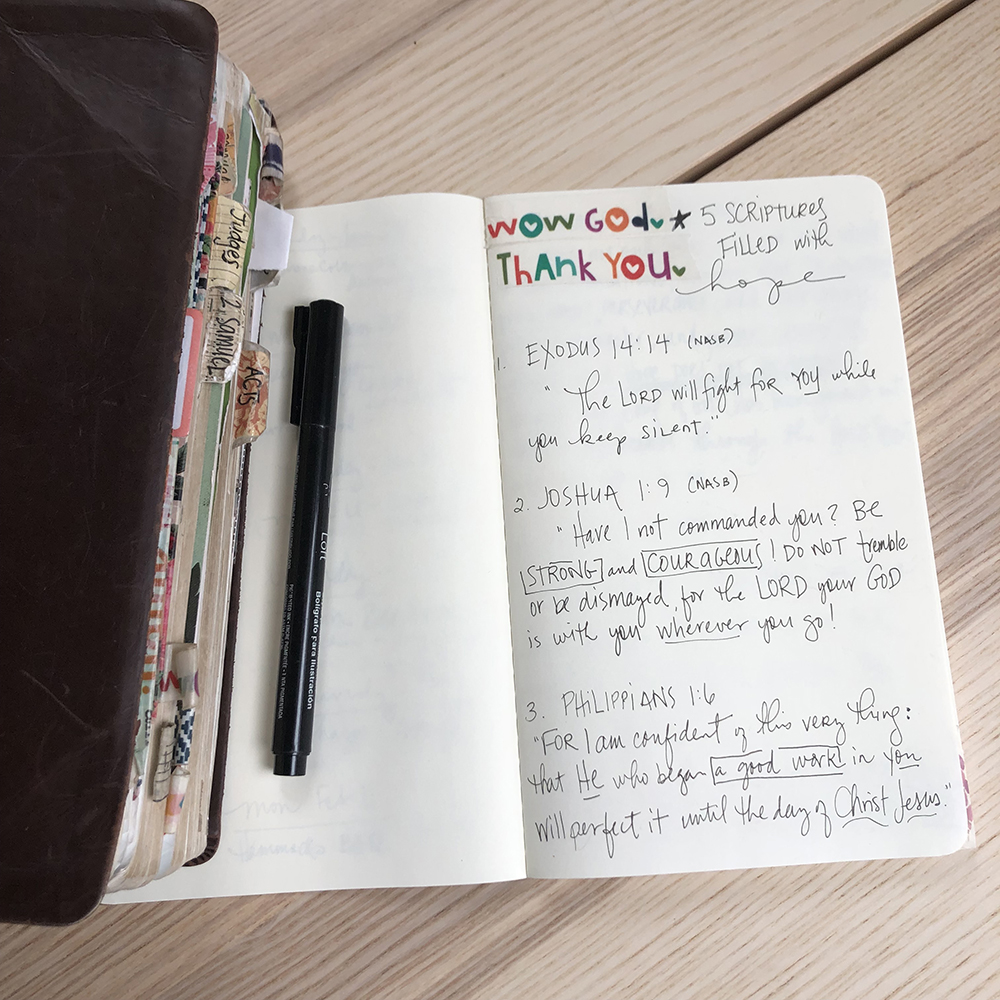 Judges
2 SAMUEL
ACTS
Bolígrafo para ilustración
WOW GOD. ★ 5 SCRIPTURES
FILLED with
THANK YOU. hope
1. EXODUS 14:14 (NASB)
"The LORD will fight for YOU while
you keep silent."
2. JOSHUA 1:9 (NASB)
"Have I not commanded you? Be
STRONG and COURAGEOUS! DO NOT tremble
or be dismayed, for the LORD your GOD
is with you wherever you go!
3. PHILIPPIANS 1:6
"FOR I am confident of this very thing:
that He who began a good work in you
will perfect it until the day of Christ Jesus."